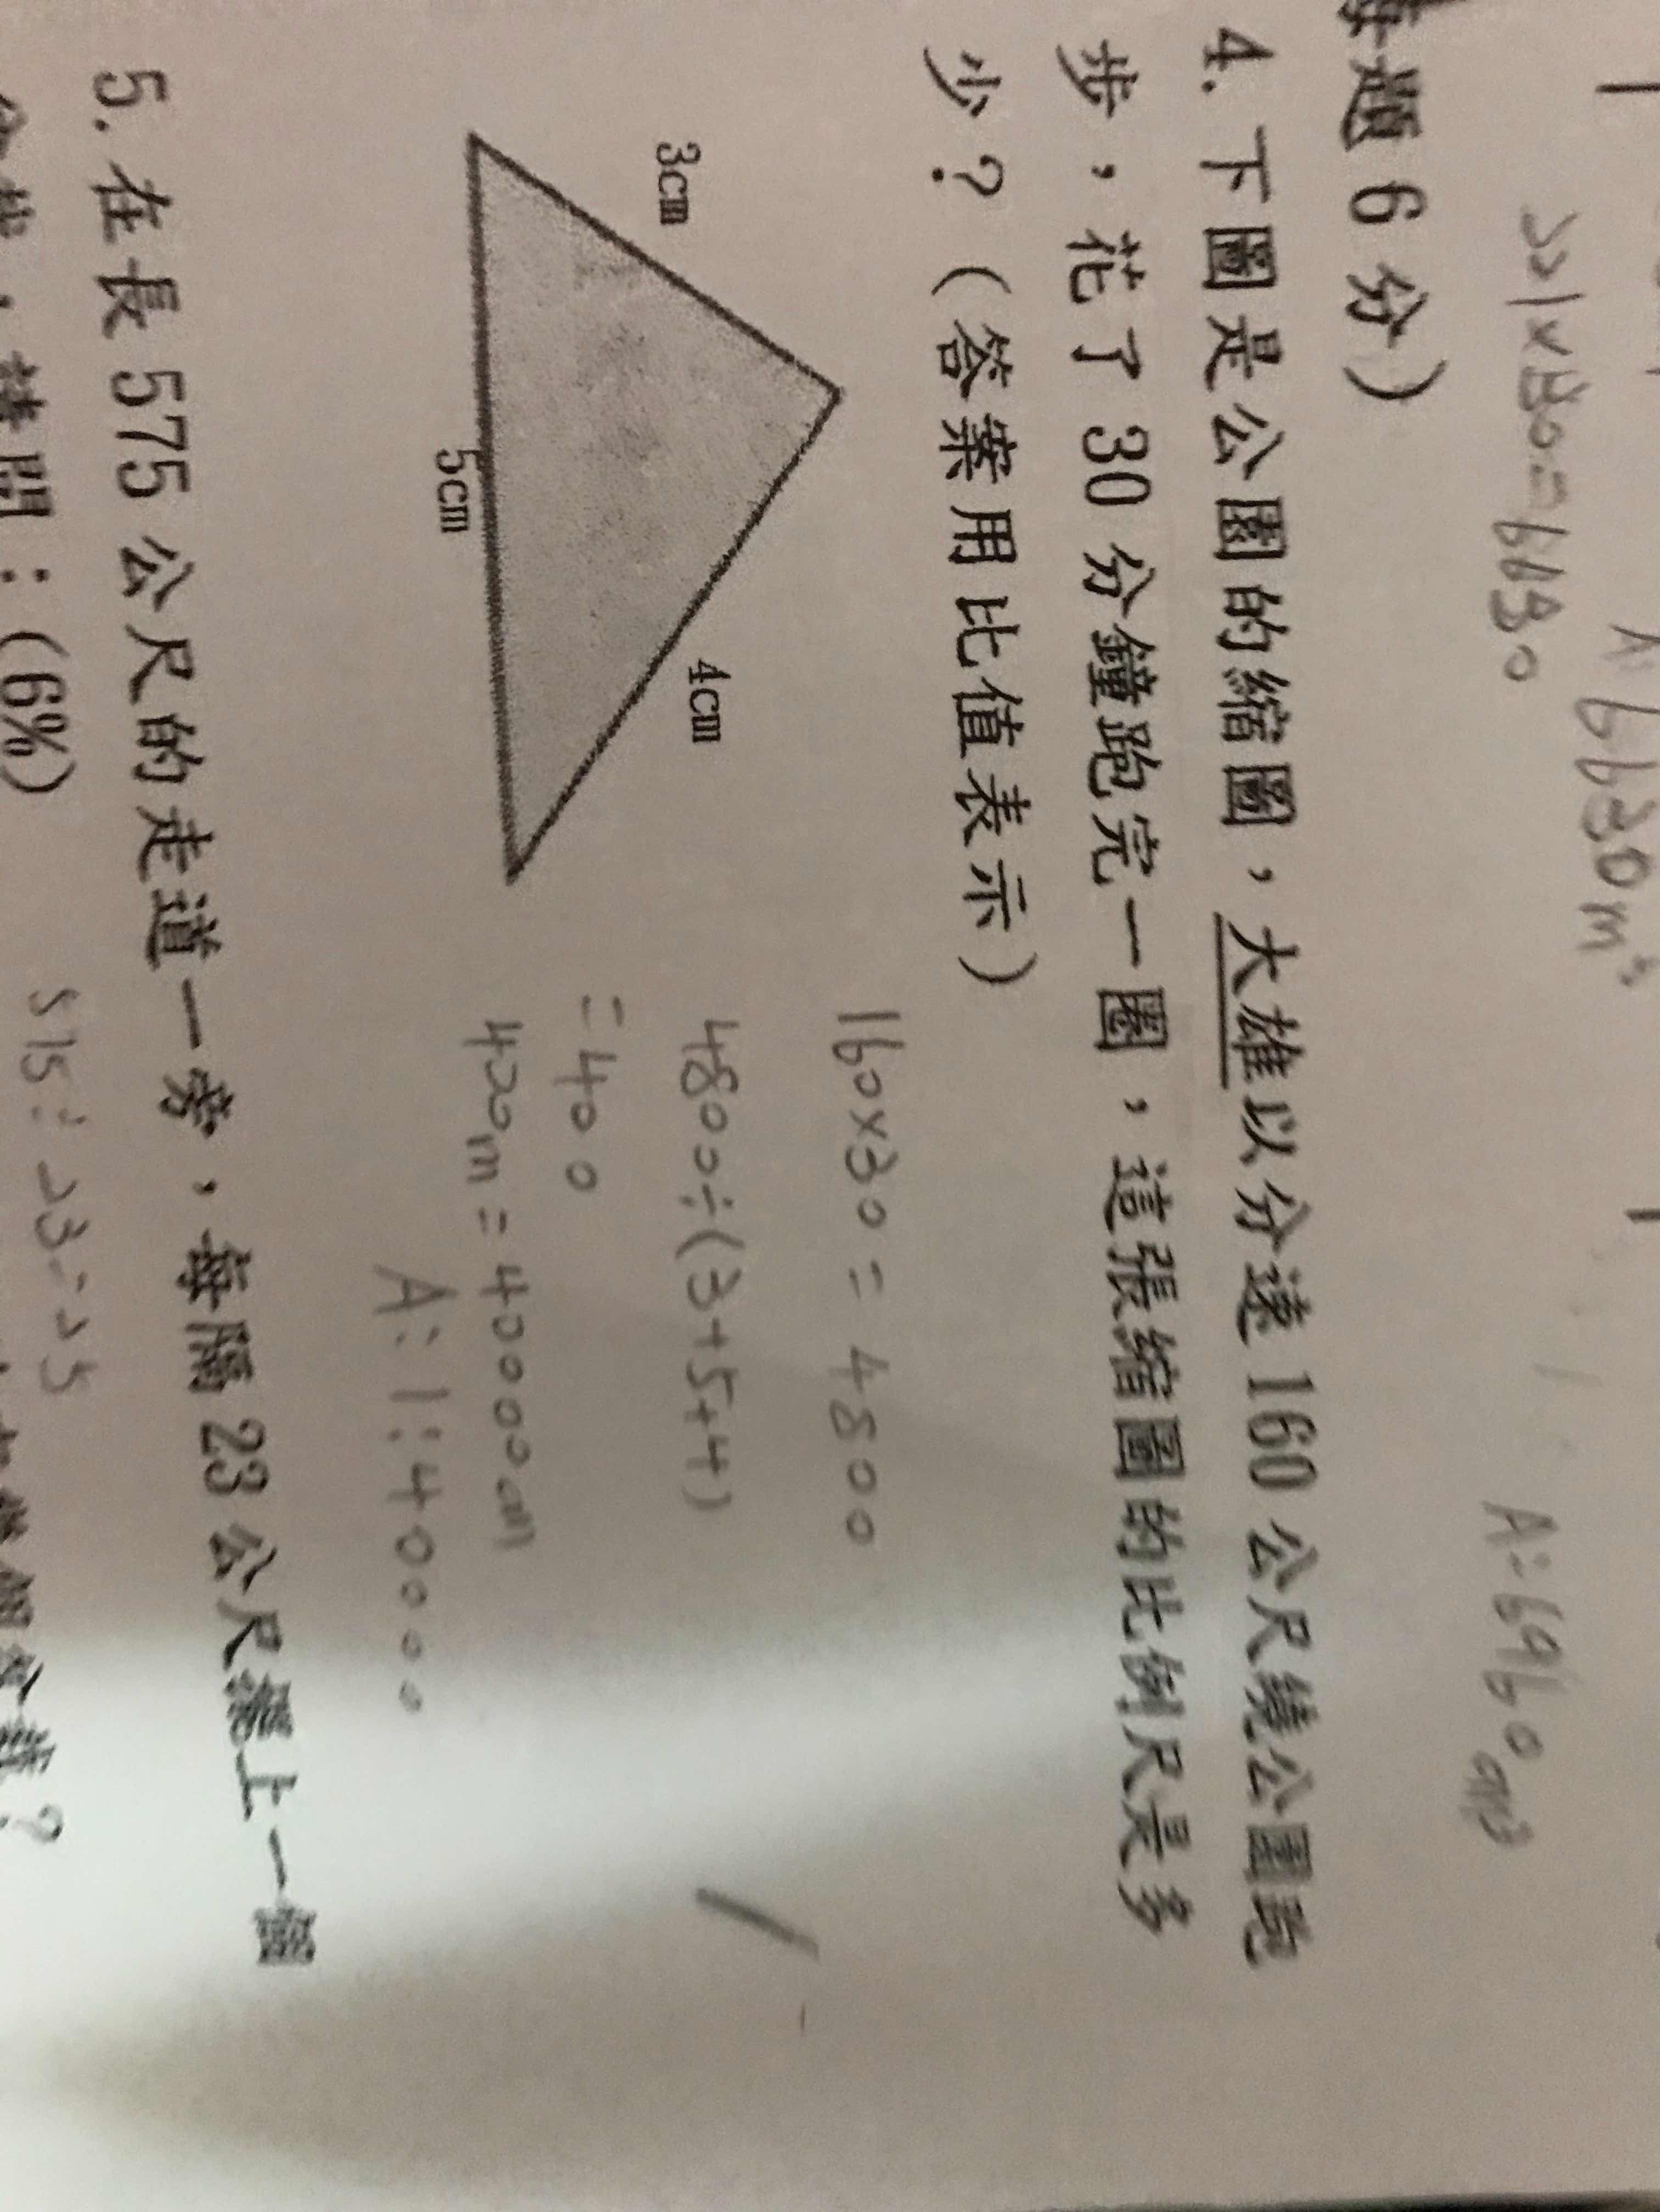 每題 6 分）
221×30=6630
A:6630m³
A:6960cm³
4. 下圖是公園的縮圖，大雄以分速 160 公尺繞公園跑
步，花了 30 分鐘跑完一圈，這張縮圖的比例尺是多
少？（答案用比值表示）
3cm
4cm
5cm
160×30=4800
4800÷(3+5+4)
=400
400m=40000cm
A:1:40000
5. 在長 575 公尺的走道一旁，每隔 23 公尺擺上一個
：(6%)
575÷23=25